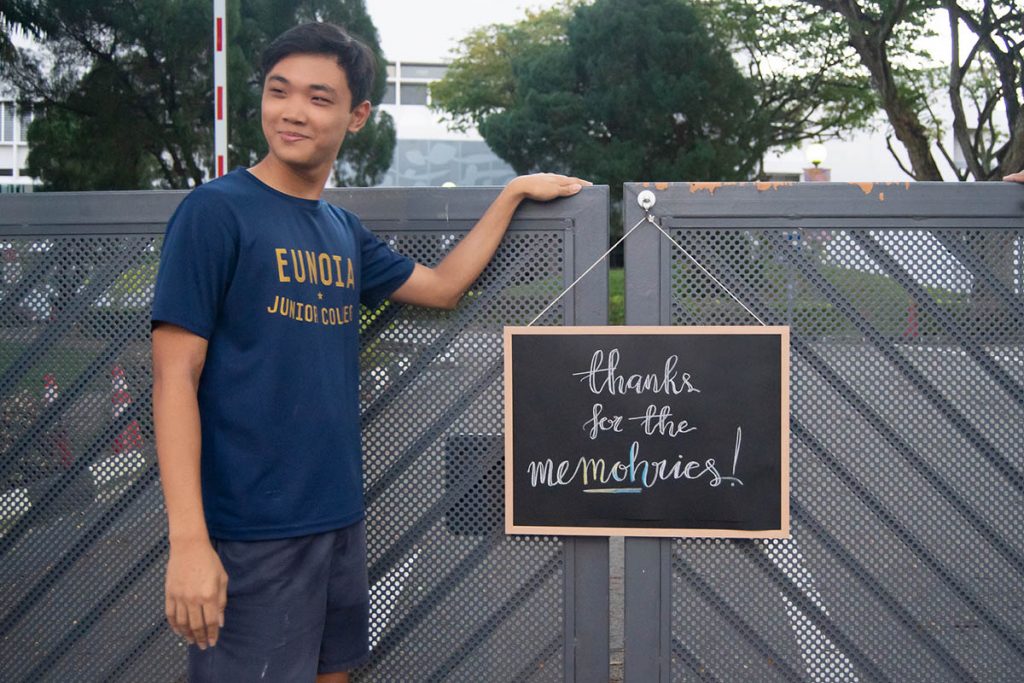 EUNOIA
JUNIOR COLEG
thanks
for the
memohries!